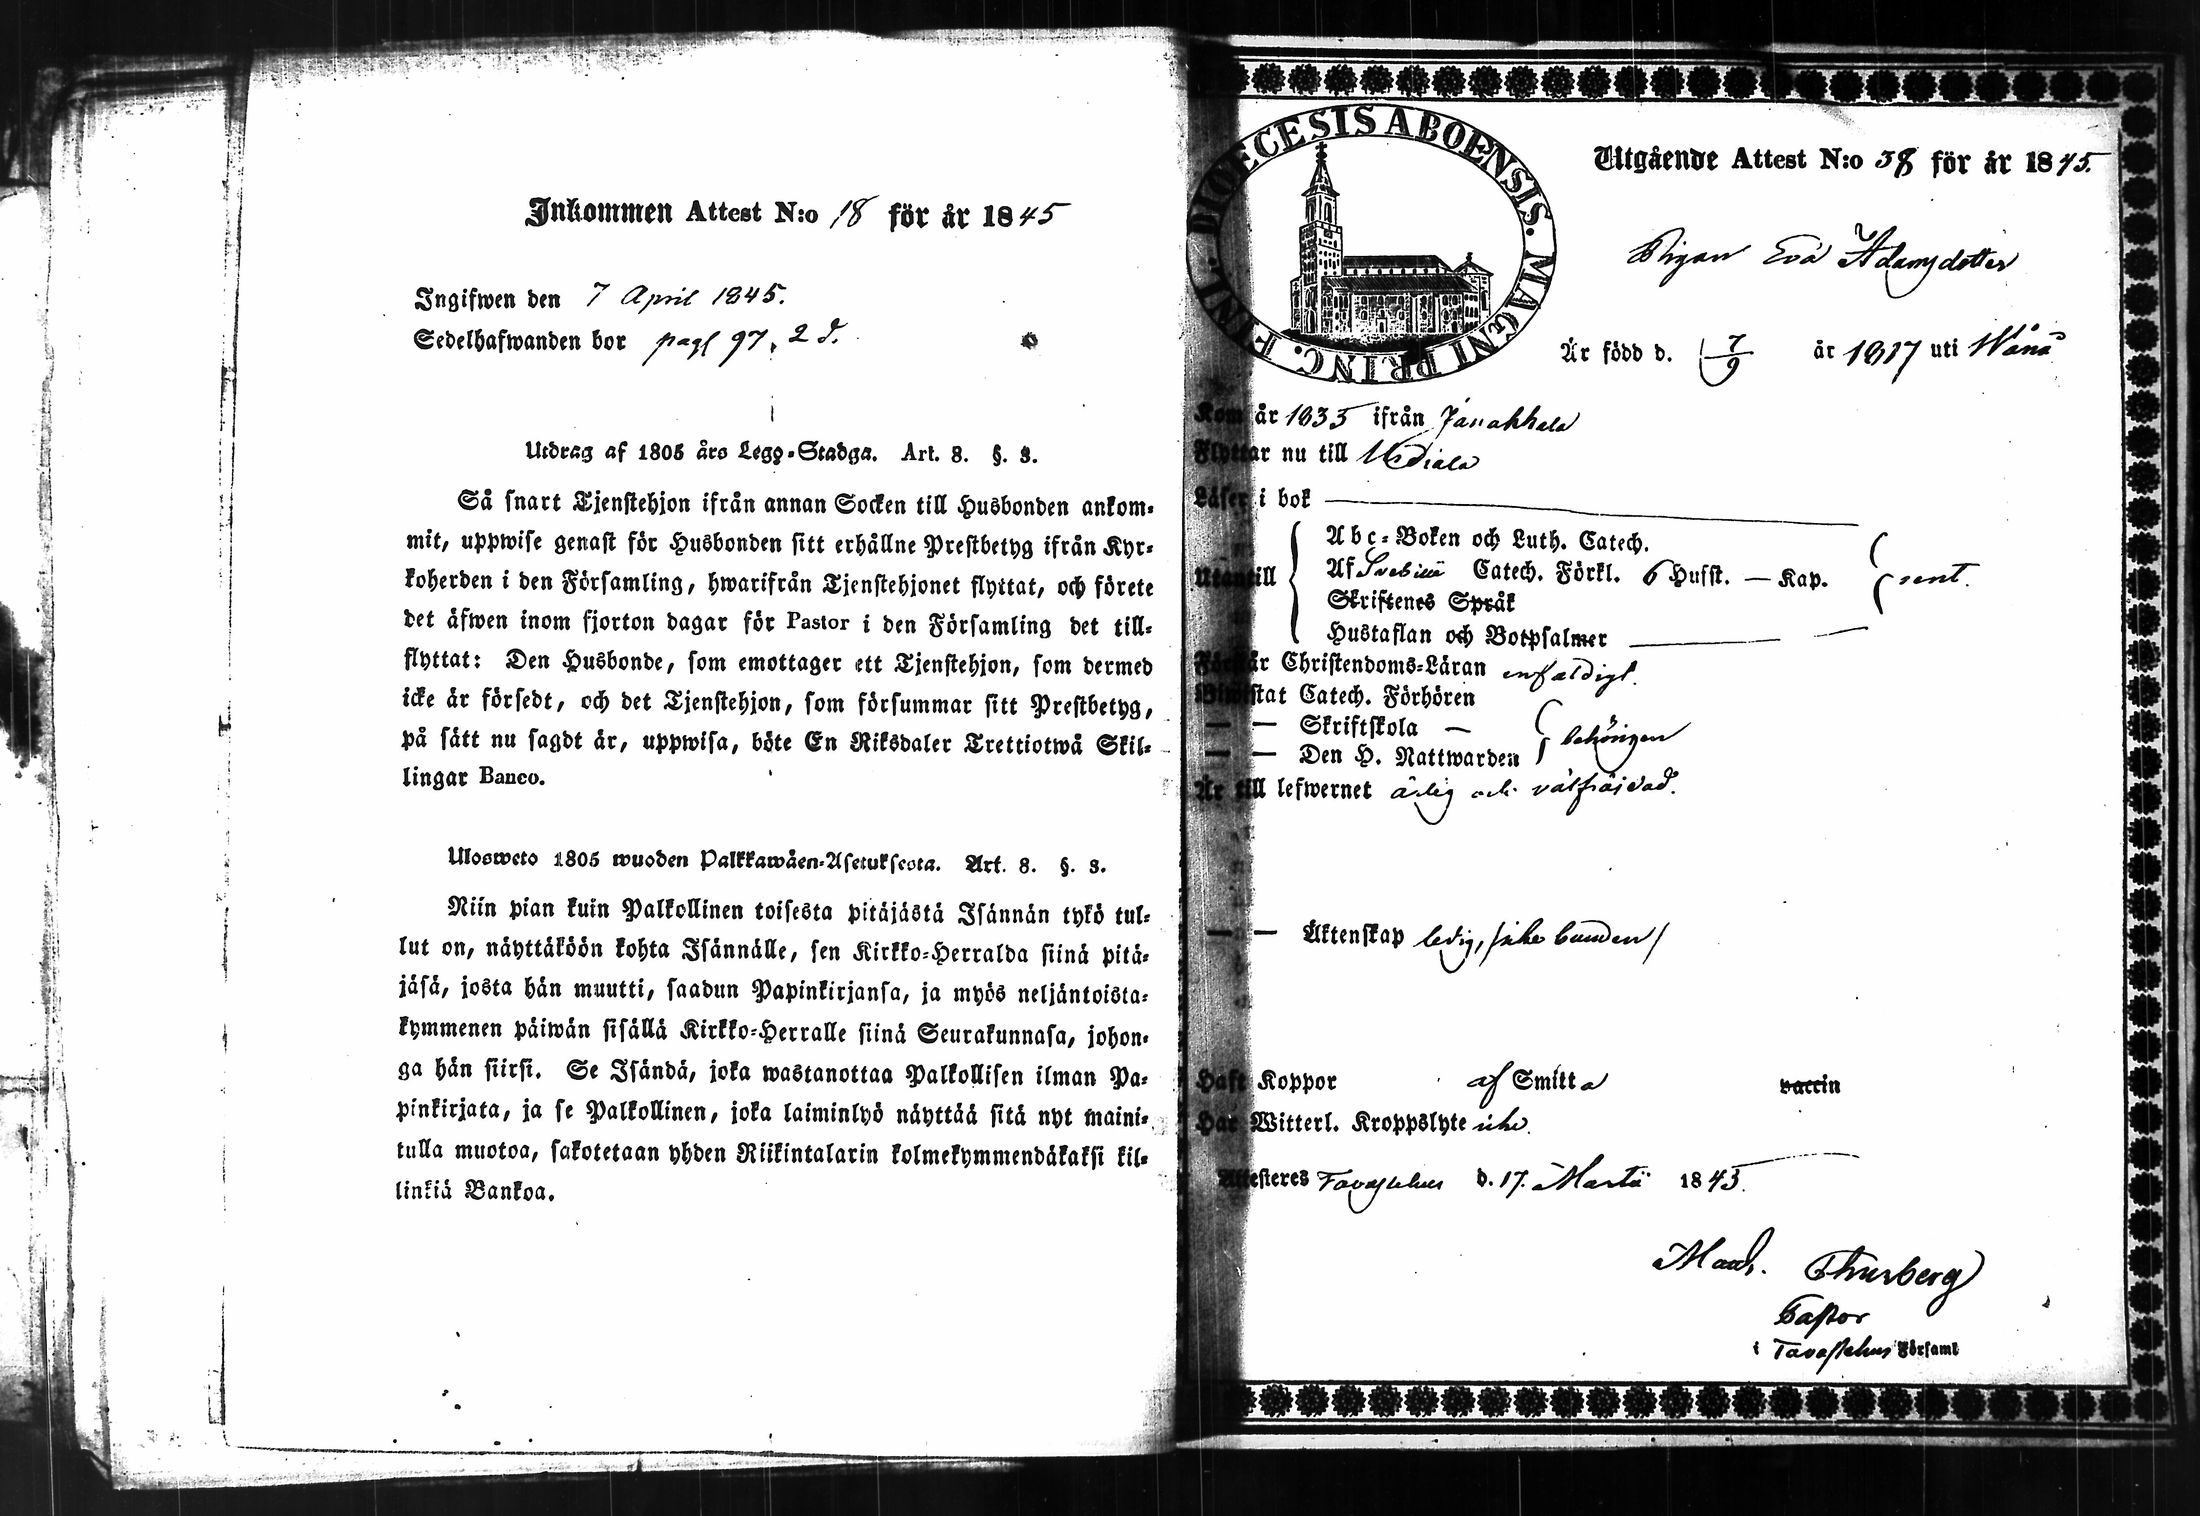 Inkommen Attest N:o 18 för år 1845
Ingifwen den 7 April 1845.
Sedelhafwanden bor pag 97, 2 d.
Utdrag af 1805 års Lego-Stadga. Art. 8. §. 3.
Så snart Tjenstehjon ifrån annan Socken till Husbonden ankom-
mit, uppwise genast för Husbonden sitt erhållne Prestbetyg ifrån Kyr-
koherden i den Församling, hwarifrån Tjenstehjonet flyttat, och förete
det äfwen inom fjorton dagar för Pastor i den Församling det till-
flyttat: Den Husbonde, som emottager ett Tjenstehjon, som dermed
icke är försedt, och det Tjenstehjon, som försummar sitt Prestbetyg,
på sätt nu sagdt är, uppwisa, böte En Riksdaler Trettiotwå Skil-
lingar Banco.
Ulosweto 1805 wuoden Palkkawäen-Asetuksesta. Art. 8. §. 3.
Niin pian kuin Palkollinen toisesta pitäjästä Isännän tykö tul-
lut on, näyttäköön kohta Isännälle, sen Kirkko-Herralda siinä pitä-
jäsä, josta hän muutti, saadun Papinkirjansa, ja myös neljäntoista-
kymmenen päiwän sisällä Kirkko-Herralle siinä Seurakunnasa, johon-
ga hän siirsi. Se Isändä, joka wastanottaa Palkollisen ilman Pa-
pinkirjata, ja se Palkollinen, joka laiminlyö näyttää sitä nyt maini-
tulla muotoa, sakotetaan yhden Riikintalarin kolmekymmendäkaksi kil-
linkiä Bankoa.
DIOECESIS ABOENSIS. MAGNI PRINC. FINL.
Utgående Attest N:o 38 för år 1845.
Pigan Eva Adamsdotter
Är född d. 7/9 år 1817 uti Wånå
Kom år 1835 ifrån Janakkala
Flyttar nu till
Läser i bok
Utantill
Abc-Boken och Luth. Catech.
Af Svebilii Catech. Förkl. 6 Husst. — Kap.
Skriftenes Språk
Hustaflan och Botpsalmer
Förstår Christendoms-Läran enfaldigt.
Biwistat Catech. Förhören
— — Skriftskola —
— — Den H. Nattwarden behörigen
Är till lefwernet ärlig och välfräjdad.
— — Äktenskap ledig, /icke bunden/
Haft Koppor af Smitta vaccin
Har Witterl. Kroppslyte icke.
Attesteres Tavastehus d. 17. Martii 1845.
Thurberg
Pastor
i Tavastehus Församl